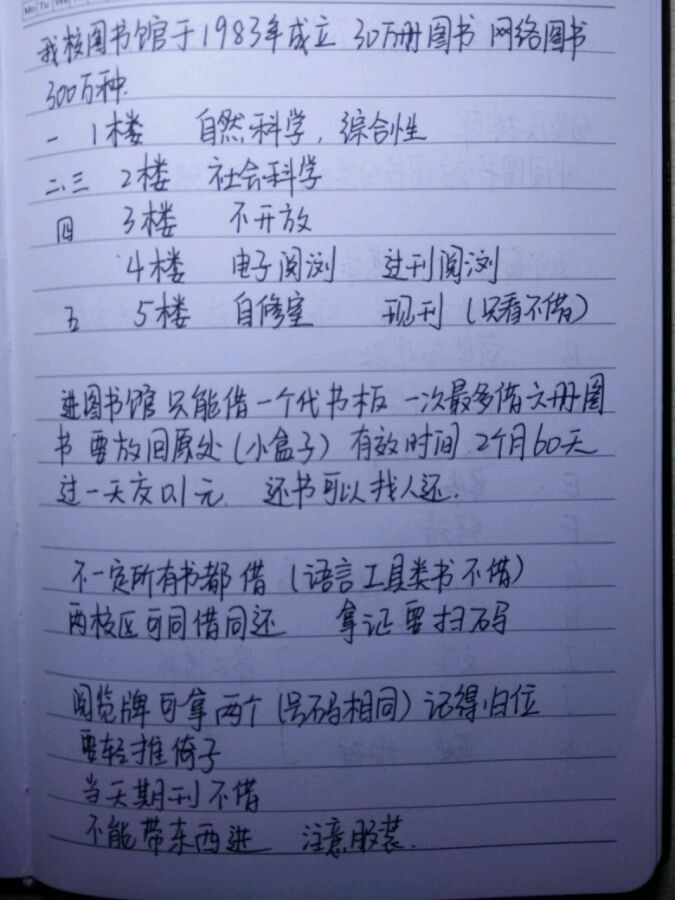 Mo Tu We
我校图书馆于1983年成立 30万册图书 网络图书
300万种.
一 1楼 自然科学，综合性
二、三 2楼 社会科学
四 3楼 不开放
4楼 电子阅浏 过刊阅浏
五 5楼 自修室 现刊（只看不借）
进图书馆只能借一个代书板 一次最多借六册图
书 要放回原处（小盒子）有效时间 2个月60天
过一天交0.1元. 还书可以找人还.
不一定所有书都借（语言工具类书不借）
两校区可同借同还 拿证要扫码
阅览牌可拿两个（号码相同）记得归位
要轻推倚子
当天期刊不借
不能带东西进 注意服装.